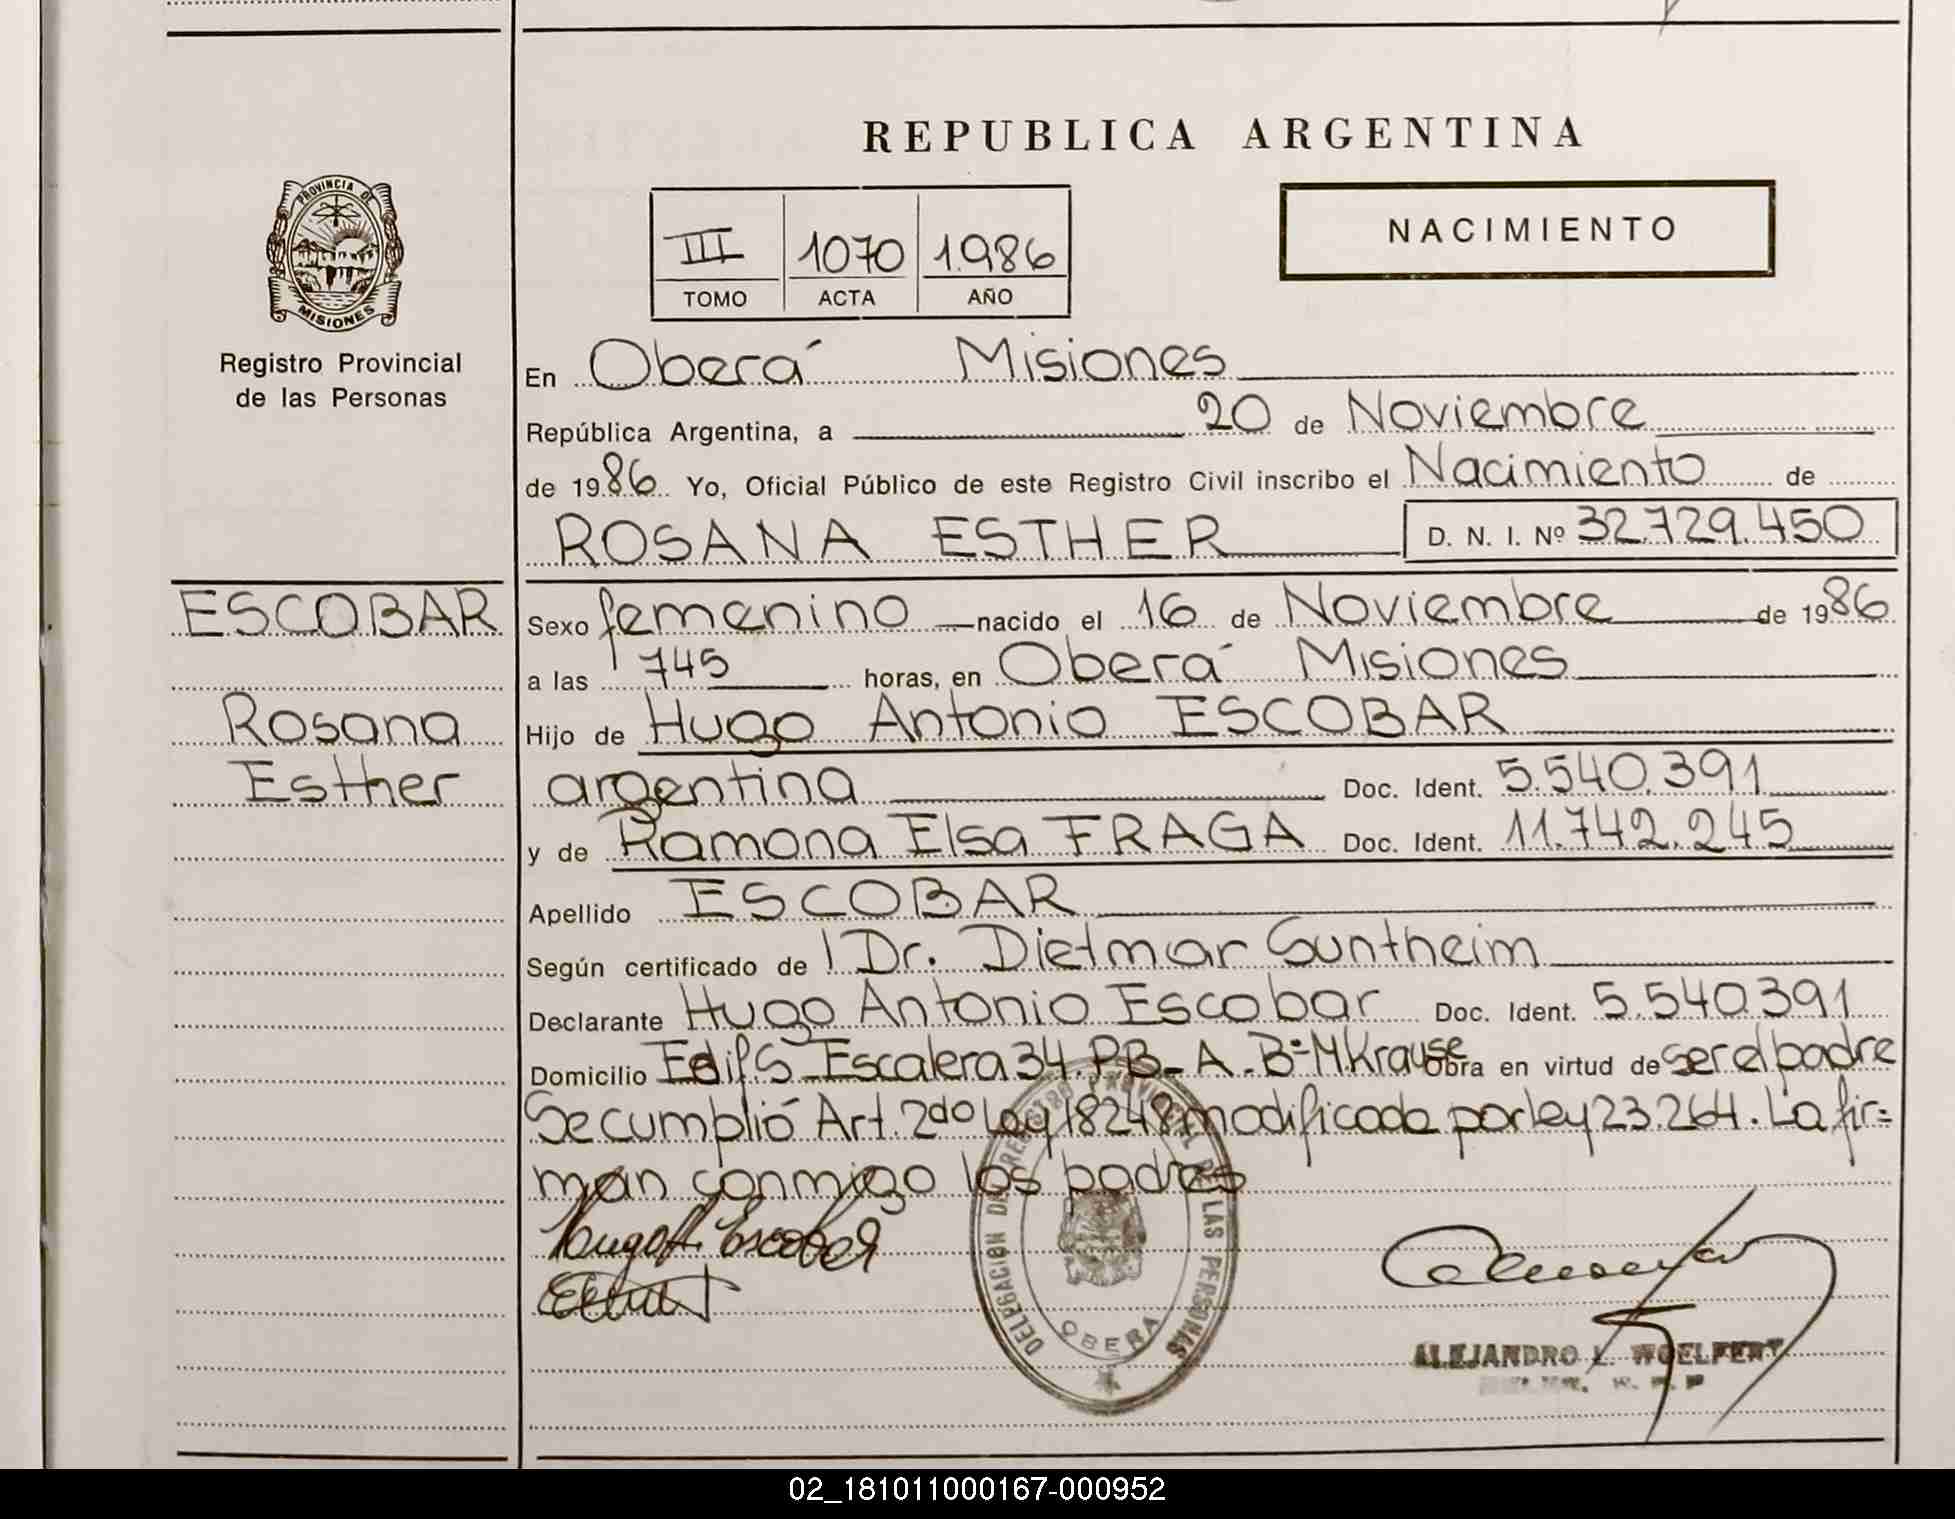 REPUBLICA ARGENTINA
PROVINCIA DE
MISIONES
Registro Provincial
de las Personas
III 1070 1.986
TOMO ACTA AÑO
NACIMIENTO
En Oberá Misiones
República Argentina, a 20 de Noviembre
de 1986. Yo, Oficial Público de este Registro Civil inscribo el Nacimiento de
ROSANA ESTHER D. N. I. Nº 32.729.450
ESCOBAR
Rosana
Esther
Sexo femenino nacido el 16 de Noviembre de 1986
a las 745 horas, en Oberá Misiones
Hijo de Hugo Antonio ESCOBAR
argentina Doc. Ident. 5.540.391
y de Ramona Elsa FRAGA Doc. Ident. 11.742.245
Apellido ESCOBAR
Según certificado de l Dr. Dietmar Suntheim
Declarante Hugo Antonio Escobar Doc. Ident. 5.540.391
Domicilio Edif 5 Escalera 34. P.B- A. Bº M.Krause Obra en virtud de ser el padre
Se cumplió Art. 2do Ley 18248 modificada por ley 23.264. La fir=
man conmigo los padres
Hugo A. Escobar
DELEGACION DEL REGISTRO PROVINCIAL DE LAS PERSONAS
OBERA
ALEJANDRO L. WOELFERT
02_181011000167-000952